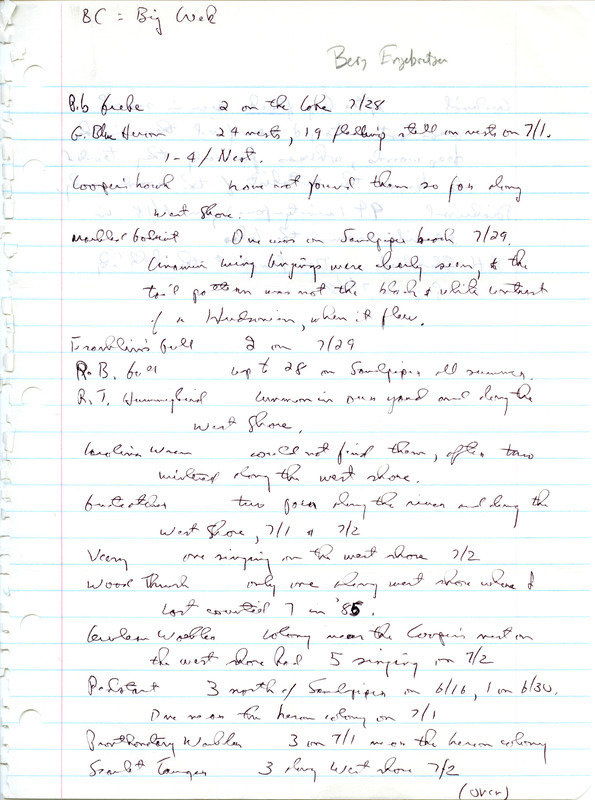 BC = Big
P.b Grebe 2 on the Lake 7/28
G. Blue Heron 24 nests, 19 fledlings still on nests on 7/1.
1-4 / Nest.
Cooper's hawk have not found them so far along
West Shore.
Marbled Godwit One was on Sandpiper beach 7/29.
Cinnamon wing linings were clearly seen, & the
tail pattern was not the black & white contrast
of a Hudsonian, when it flew.
Franklin's Gull 2 on 7/29
R.B. Gull up to 28 on Sandpiper all summer.
R.T. Hummingbird Common in our yard and along the
West Shore.
Carolina Wren could not find them, after two
wintered along the west shore.
Gnatcatcher two pairs along the river and along the
West Shore, 7/1 & 7/2
Veery one singing on the west shore 7/2
Wood Thrush only one along west shore where I
last counted 7 in '85.
Cerulean Warbler colony near the Cooper's nest on
the west shore had 5 singing on 7/2
Redstart 3 north of Sandpiper on 6/16, 1 on 6/30.
One near the heron colony on 7/1
Prothonotary Warbler 3 on 7/1 near the heron colony
Scarlet Tanager 3 along West shore 7/2
(over)